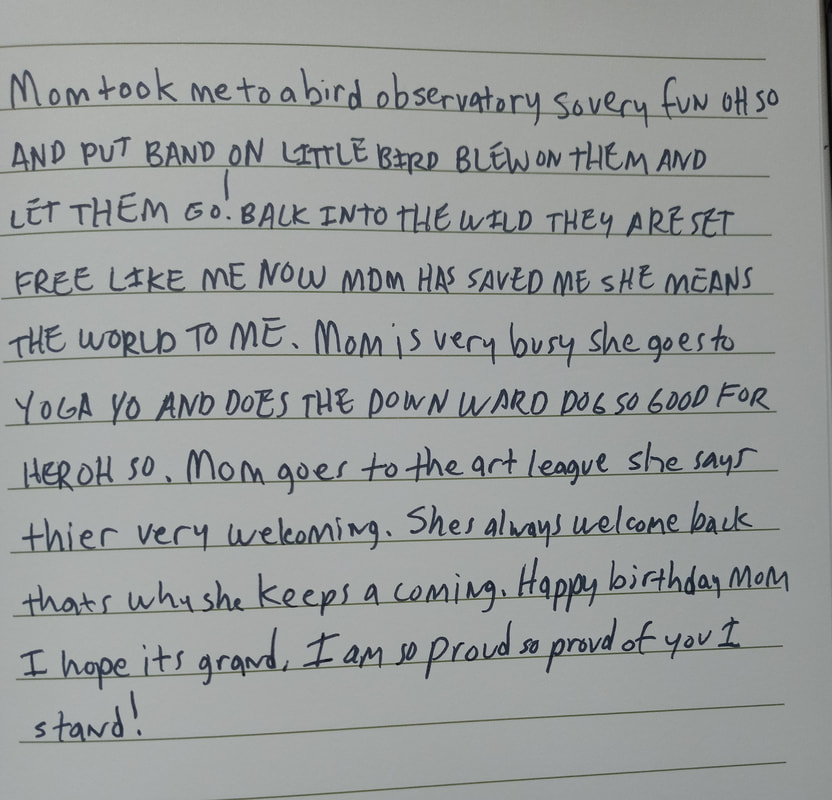 Mom took me to a bird observatory so very fun OH SO
AND PUT BAND ON LITTLE BIRD BLEW ON THEM AND
LET THEM GO! BACK INTO THE WILD THEY ARE SET
FREE LIKE ME NOW MOM HAS SAVED ME SHE MEANS
THE WORLD TO ME. Mom is very busy she goes to
YOGA YO AND DOES THE DOWN WARD DOG SO GOOD FOR
HER OH SO. Mom goes to the art league she says
thier very welcoming. Shes always welcome back
thats why she keeps a coming. Happy birthday Mom
I hope its grand, I am so proud so proud of you I
stand!